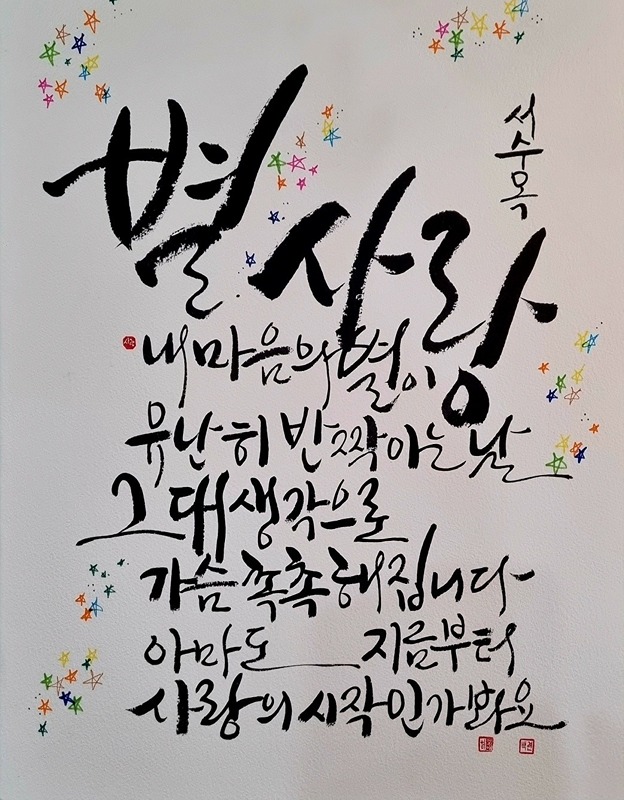 별 사랑
서수옥
내 마음의 별이
유난히 반짝이는 날
그대 생각으로
가슴 촉촉해집니다
아마도 지금부터
사랑의 시작인가봐요